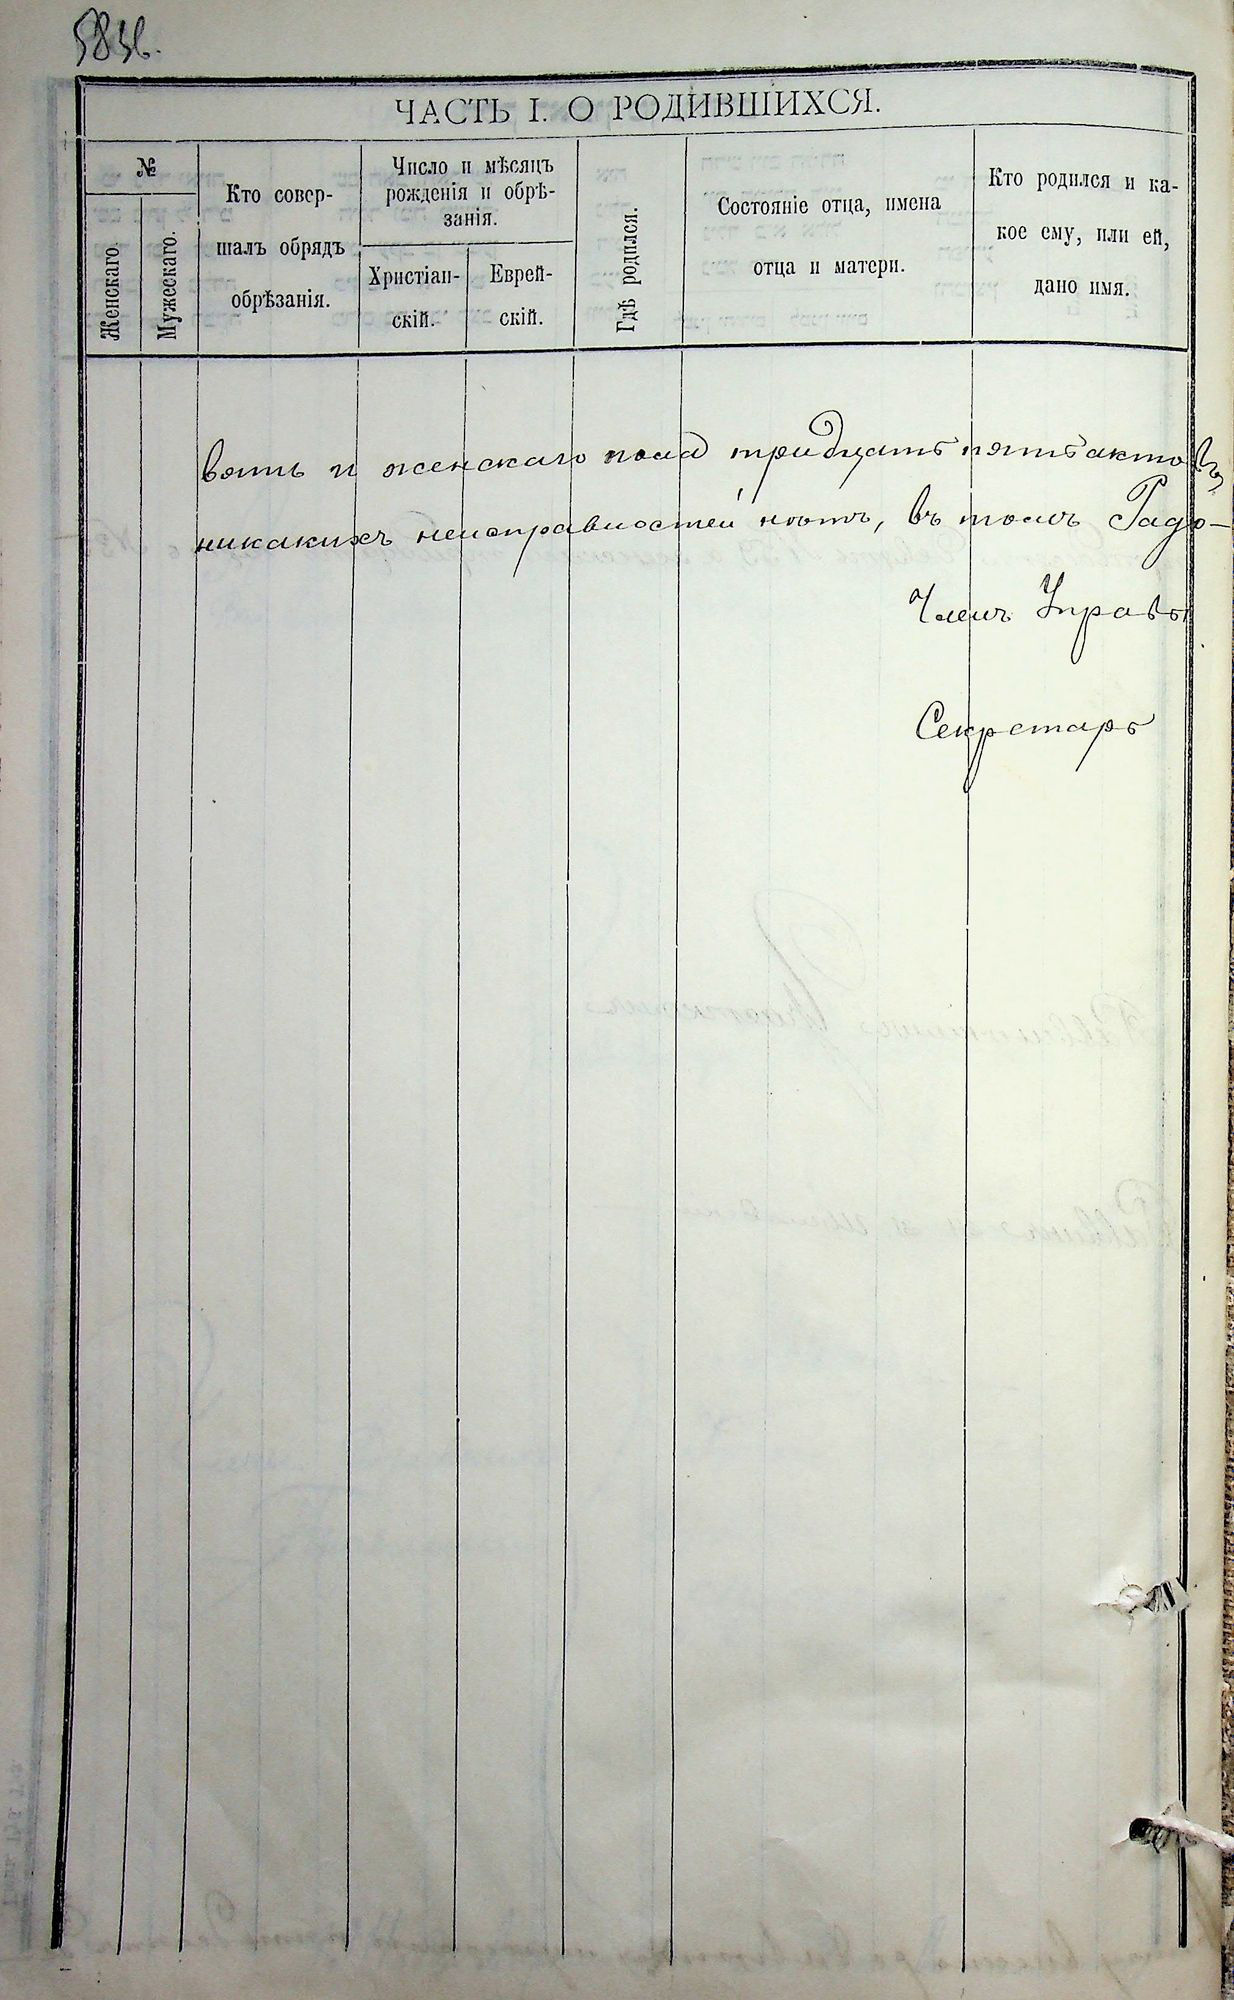 583 об.
ЧАСТЬ I. О РОДИВШИХСЯ.
№
Женскаго.
Мужескаго.
Кто совер-
шалъ обрядъ
обрѣзанія.
Число и мѣсяцъ
рожденія и обрѣ-
занія.
Христіан-
скій.
Еврей-
скій.
Гдѣ родился.
Состояніе отца, имена
отца и матери.
Кто родился и ка-
кое ему, или ей,
дано имя.
вять и женскаго пола тридцать пять актовъ,
никакихъ неисправностей нѣтъ, въ томъ Радо-
Членъ Управы
Секретарь